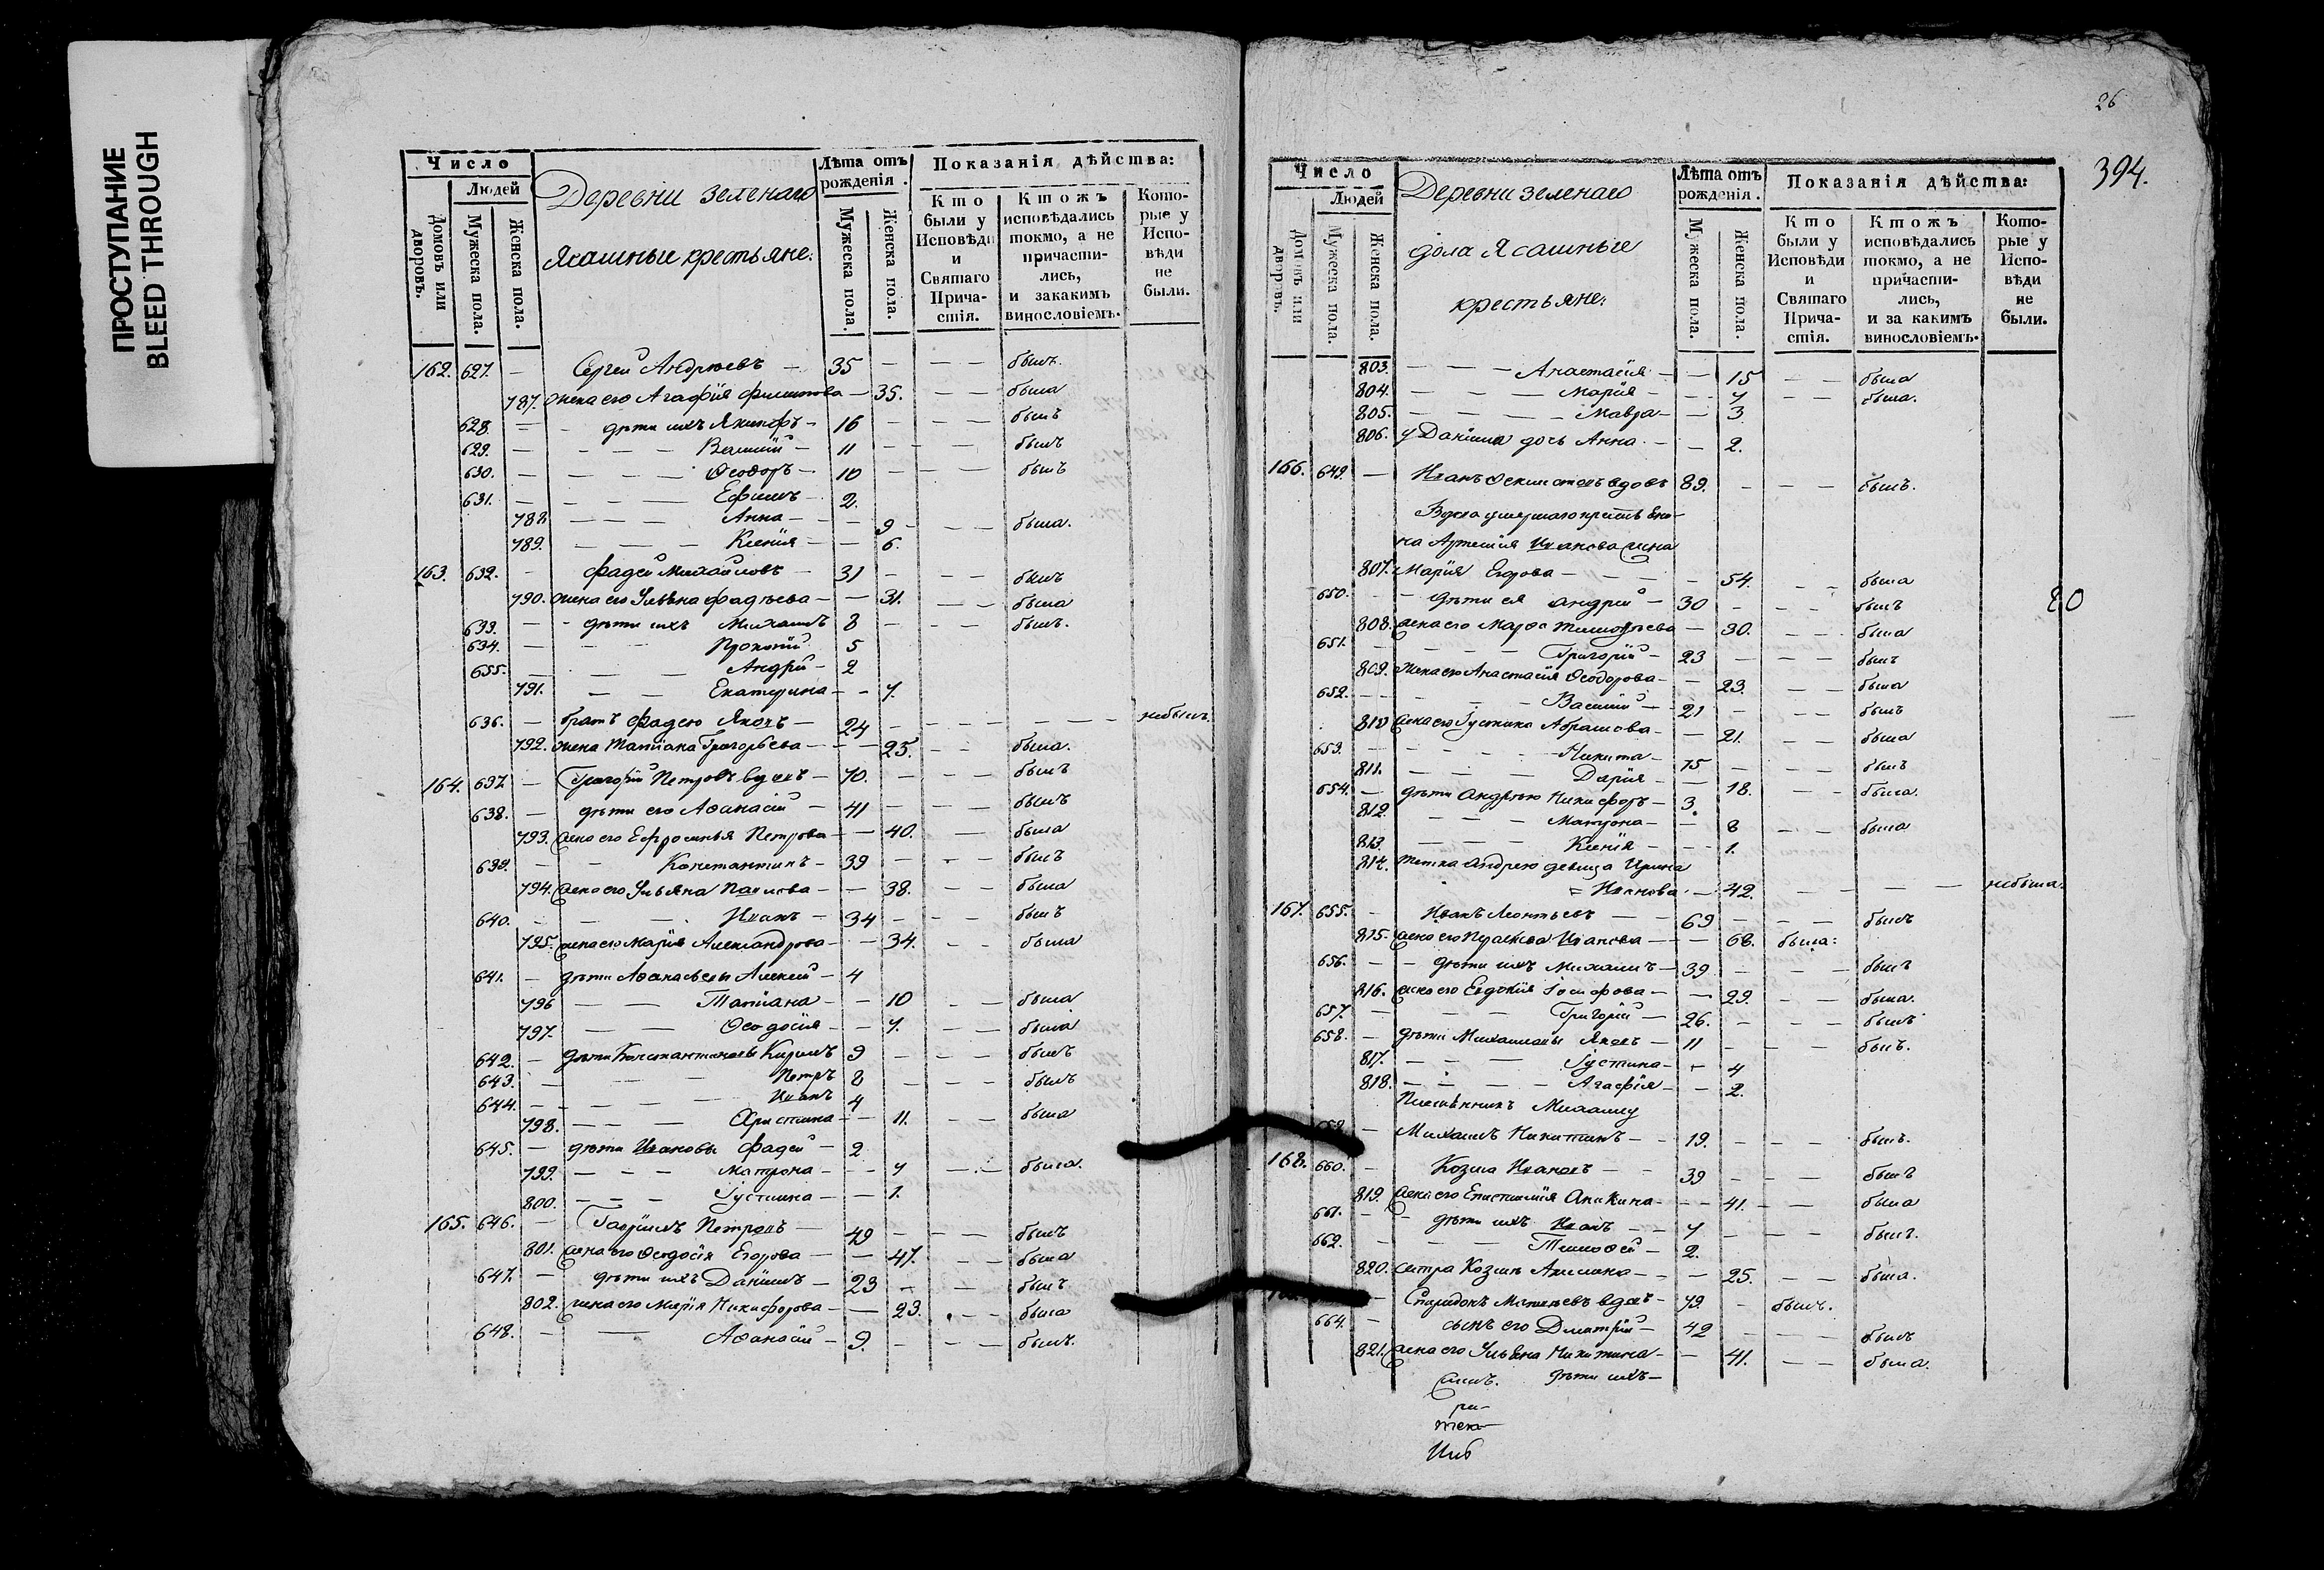 ПРОСТУПАНИЕ
BLEED THROUGH
Число
Людей
Домовъ или дворовъ.
Мужеска пола.
Женска пола.
Деревни Зеленаго
Ясашные крестьяне.
Лѣта отъ рожденія.
Мужеска пола.
Женска пола.
Показанія дѣйства:
Кто были у Исповѣди и Святаго Прича-стія.
Ктожъ исповѣдались токмо, а не причасти-лись, и закакимъ винословіемъ.
Кото-рые у Испо-вѣди не были.
162. 627. — Сергей Андреевъ — 35 — — — былъ.
787. жена его Агафія Филипова — 35. — — была
628. — — дѣти ихъ Якинфъ — 16 — — — былъ
629. — — — — Василий — 11 — — — былъ
630. — — — — Ѳеодоръ — 10 — — — былъ
631. — — — — Ефимъ — 2.
788. — — — Анна — — 9 — — — была.
789. — — — Ксенія — — 6.
163. 632. — Фадей Михайловъ — 31 — — — былъ
790. жена его Ульяна Фадѣева — — 31. — — была
633. — — дѣти ихъ Михаилъ 8 — — — былъ.
634. — — — Прокопий 5
655. — — — Андрей — 2
791. — — Екатерина — — 7.
636. — братъ Фадею Яковъ — 24 — — — — — — небылъ
792. жена Татіана Григорьева — — — 25. — — была.
164. 637. — Григорий Петровъ вдовъ — 70. — — — былъ
638. — дѣти его Аѳанасий — 41 — — — былъ
793. жена его Ефросинья Петрова — — 40. — — была
639. — — Константинъ — 39 — — — былъ
794. жена его Ульяна Павлова — — 38. — — была
640. — — — Иванъ — 34 — — — былъ
795. жена его Марія Александрова — — 34. — — была
641. — дѣти Аѳанасьевы Алексей — 4
796 — — Татіана — — 10 — — была
797. — — Ѳеодосія — — 7. — — была
642. — дѣти Константиновы Кирилъ 9 — — — былъ
643. — — — — Петръ 8 — — — былъ
644. — — — — Иванъ 4
798. — — — Христина — — 11. — — была
645. — дѣти Ивановы Фадей — 2
799. — — — Матрона — — 7 — — была.
800. — — — Густина — — 1.
165. 646. — Гавриилъ Петровъ — 49 — — — былъ
801. жена его Ѳеодосія Егорова — — 47. — — была
647. — дѣти ихъ Даниилъ — 23 — — былъ
802. жена его Марія Никифорова — — 23. — — была
648. — — Аѳанасий — 9. — — — былъ.
26
394.
Число
Людей
Домовъ или дворовъ.
Мужеска пола.
Женска пола.
Деревни Зеленаго
дола Ясашные
крестьяне.
Лѣта отъ рожденія.
Мужеска пола.
Женска пола.
Показанія дѣйства:
Кто были у Исповѣди и Святаго Прича-стія.
Ктожъ исповѣдались токмо, а не причасти-лись, и за какимъ винословіемъ.
Кото-рые у Испо-вѣди не были.
803. — — — Анастасія — — 15 — — была
804. — — — Марія — — 7 — — была.
805. — — — — Мавра — — 3
806. у Даніила дочь Анна — — 2.
166. 649. — Иванъ вдовъ 89. — — — былъ.
Вдова умершаго
на Артемія Иванова жена
807. Марія Егорова — — — — 54. — — была
650. — — дѣти ея Андрей — 30 — — — былъ
80
808. жена его Марѳа Тимоѳѣева — 30. — — была
651. — — — — Григорій — 23 — — — былъ
809. жена его Анастасія Ѳеодорова — — 23. — — была
652. — — — — Василій — 21 — — — былъ
810 жена его Густина Абрамова — — 21. — — была
653. — — — — Никита — 15 — — — былъ
811. — — — Дарія — — 18. — — была.
654. — дѣти Андрею Никифоръ — 3.
812. — — — Матрона — — 8 — — была
813. — — — Ксенія — — 1.
814. тетка Андрею девица Ирина
= Иванова. — 42. — — — — небыла.
167. 655. — Иванъ Леонтьевъ — — 69 — — — былъ
815. жена его Прасковья Иванова — — 68. была:
656. — — дѣти ихъ Михаилъ — 39 — — — былъ
816. жена его Евдокія Іосифова — — 29. — — была.
657. — — — — Григорій — 26. — — — былъ
658. — дѣти Михаиловы Яковъ — 11 — — — былъ.
817. — — — Густина — — 4
818. — — — — Агафія — — 2.
Племянникъ Михаилу
659. — Михаилъ Никитинъ — — 19. — — — былъ.
168. 660. — Козма Ивановъ — — 39 — — — былъ
819. жена его Епистимія Аникина — — 41. — — была
661. — — дѣти ихъ Иванъ — — 7 — — — былъ.
662. — — — Тимоѳей — 2.
820. сестра Козмы Акилина — — — 25. — — была.
— Спиридонъ Матвѣевъ вдовъ — 79. — былъ.
664. — сынъ его Дмитрій — 42 — — — былъ
821. жена его Ульяна Никитина — — 41. — — была.
дѣти ихъ —